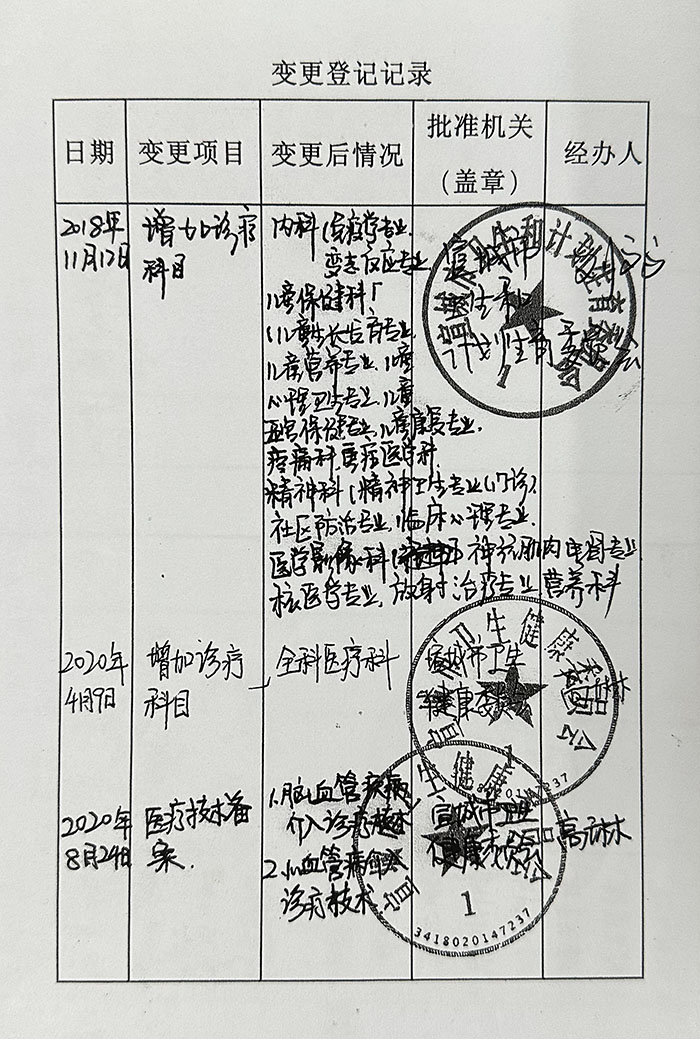 变更登记记录
日期 变更项目 变更后情况 批准机关（盖章） 经办人
2018年11月12日
增加诊疗科目
内科（免疫学专业、
变态反应专业）
儿童保健科（
（儿童生长发育专业、
儿童营养专业、儿童
心理卫生专业、儿童
五官保健专业、儿童康复专业、
疼痛科、重症医学科、
精神科（精神卫生专业（门诊）、
社区防治专业、临床心理专业、
医学影像科（神经肌肉电图专业
核医学专业、放射治疗专业、营养科
宣城市
卫生和
计划生育委员会
2020年4月9日
增加诊疗科目
全科医疗科
宣城市卫生
健康委员会
2020年8月24日
医疗技术备案.
1.脑血管疾病
介入诊疗技术
2.心血管疾病介入
诊疗技术
宣城市卫生
健康委员会
1
3418020147237